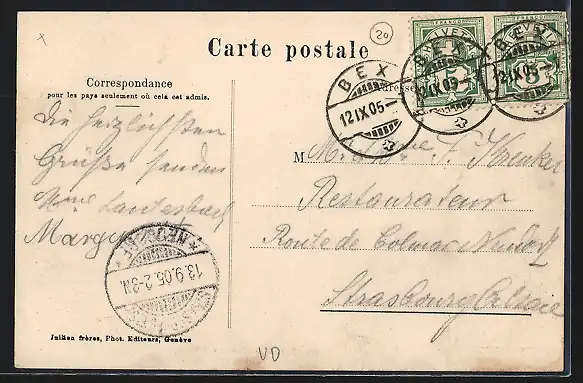 20
Carte postale
FRANCO
HELVETIA
5
FRANCO
HELVETIA
5
BEX
12 IX 05
BEX
12 IX 05
BEX
12 IX 05
Correspondance
pour les pays seulement où cela est admis.
Adresse
Die herzlichsten
Grüße senden
M
Restaurateur
Route de Colmar Neudorf
Strasbourg
NEUDORF
13.9.05. 2-3N.
Jullien frères, Phot. Editeurs, Genève
VD